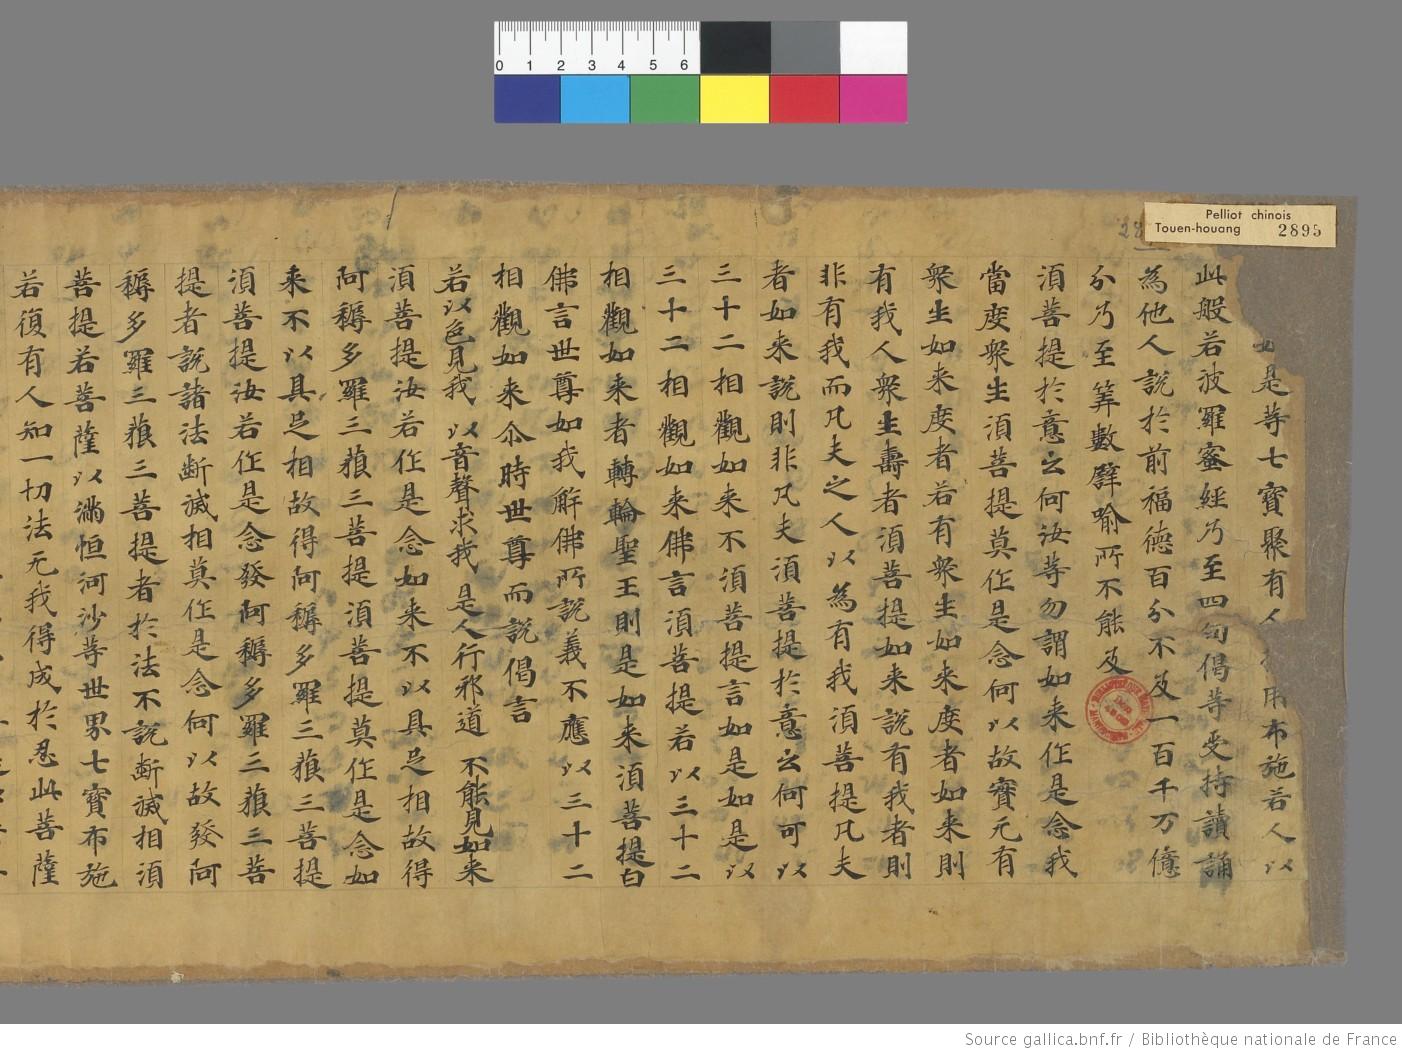 0 1 2 3 4 5 6
Pelliot chinois
Touen-houang 2895
是等七寶聚有人 用布施若人以
此般若波羅蜜經乃至四句偈等受持讀誦
為他人說於前福德百分不及一百千万億
分乃至筭數譬喻所不能及
須菩提於意云何汝等勿謂如来作是念我
當度衆生須菩提莫作是念何以故實无有
衆生如来度者若有衆生如来度者如来則
有我人衆生壽者須菩提如来說有我者則
非有我而凡夫之人以為有我須菩提凡夫
者如来說則非凡夫須菩提於意云何可以
三十二相觀如来不須菩提言如是如是以
三十二相觀如来佛言須菩提若以三十二
相觀如来者轉輪聖王則是如来須菩提白
佛言世尊如我解佛所說義不應以三十二
相觀如来尒時世尊而說偈言
若以色見我 以音聲求我 是人行邪道 不能見如来
須菩提汝若作是念如来不以具足相故得
阿耨多羅三藐三菩提須菩提莫作是念如
来不以具足相故得阿耨多羅三藐三菩提
須菩提汝若作是念發阿耨多羅三藐三菩
提者說諸法斷滅相莫作是念何以故發阿
耨多羅三藐三菩提者於法不說斷滅相須
菩提若菩薩以滿恒河沙等世界七寶布施
若復有人知一切法无我得成於忍此菩薩
Source gallica.bnf.fr / Bibliothèque nationale de France